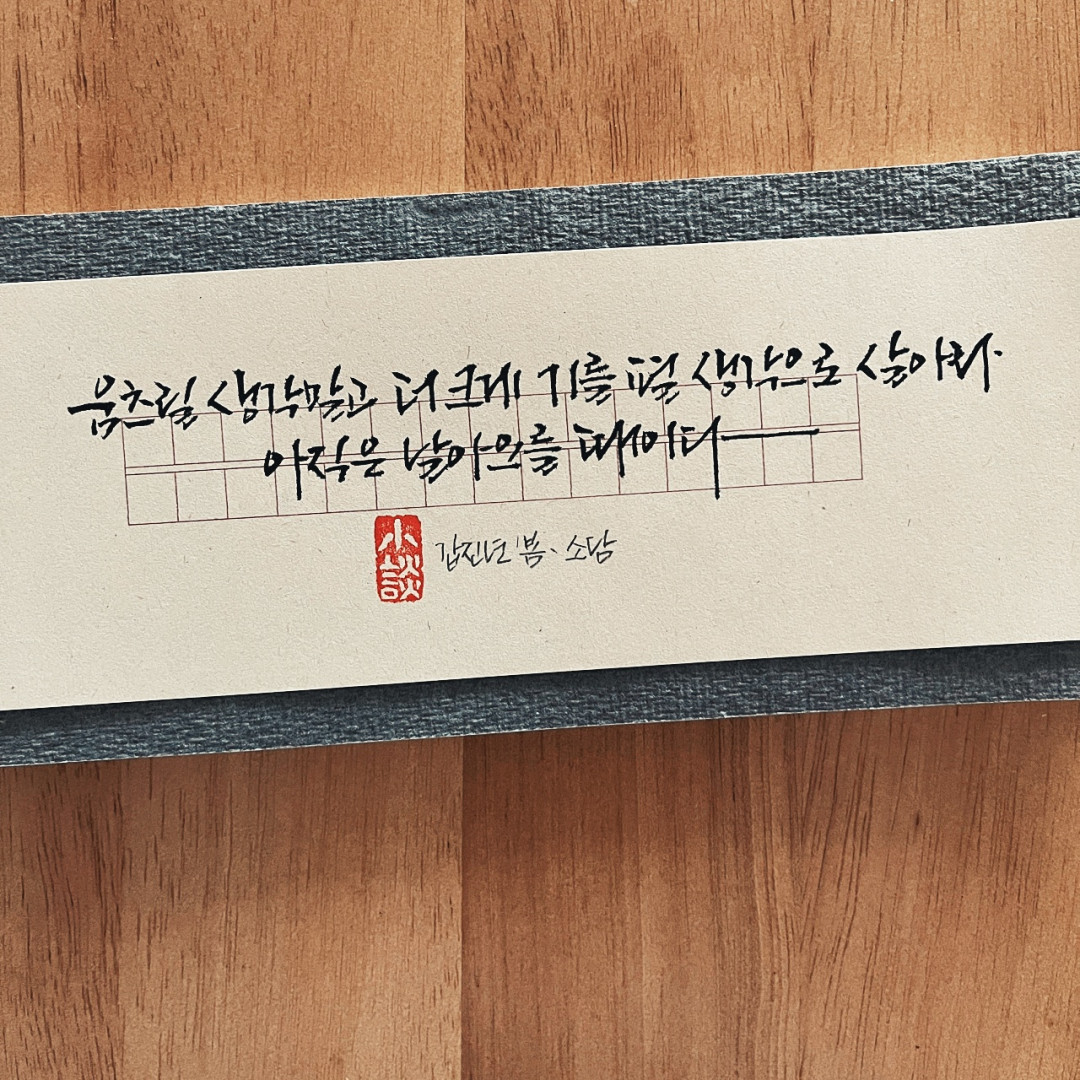 움츠릴 생각말고 더 크게 기를 펼 생각으로 살아라.
아직은 날아오를 때이다
小談
갑진년 봄、소담